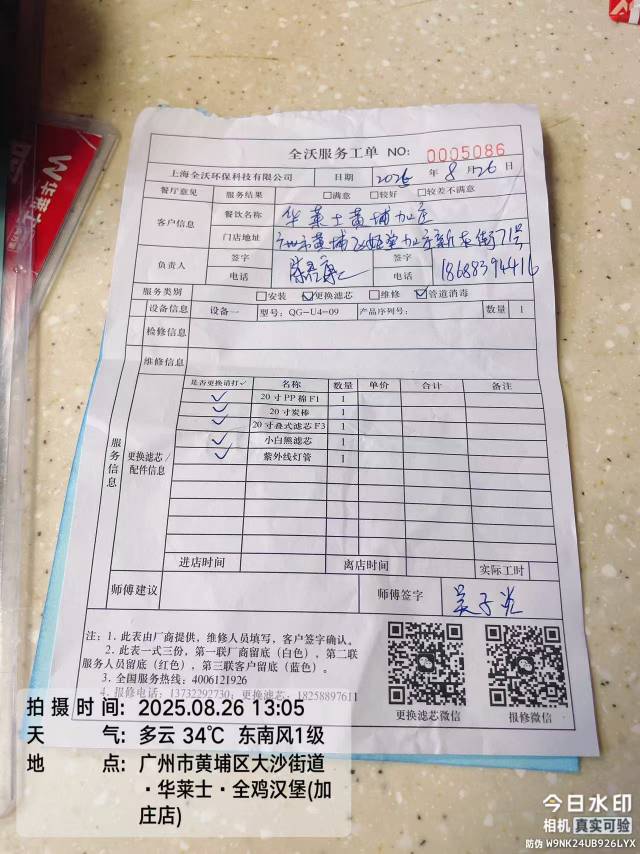 华莱士
全沃服务工单 NO: 0005086
上海全沃环保科技有限公司 日期 2025 年 8 月 26 日
餐厅意见 服务结果 □满意 □较好 □较差不满意
客户信息 餐饮名称 华莱士黄埔加庄
门店地址 广州市黄埔 加庄新东街71号
负责人 签字 签字
电话 电话 18688394416
服务类别 □安装 ☑更换滤芯 □维修 ☑管道消毒
设备信息 设备一 型号: QG-U4-09 产品序列号: 数量 1
检修信息
维修信息
服务信息
更换滤芯/配件信息
是否更换请打✓ 名称 数量 单价 合计 备注
✓ 20寸PP棉F1 1
✓ 20寸炭棒 1
✓ 20寸叠式滤芯F3 1
✓ 小白熊滤芯 1
✓ 紫外线灯管 1
进店时间 离店时间 实际工时
师傅建议 师傅签字
注: 1. 此表由厂商提供, 维修人员填写, 客户签字确认。
2. 此表一式三份, 第一联厂商留底(白色), 第二联
服务人员留底(红色), 第三联客户留底(蓝色)。
3. 全国服务热线: 4006121926
4. 报修电话: 13732292730; 更换滤芯: 18258897611
更换滤芯微信 报修微信
拍摄时间: 2025.08.26 13:05
天 气: 多云 34℃ 东南风1级
地 点: 广州市黄埔区大沙街道
·华莱士·全鸡汉堡(加
庄店)
今日水印
相机 真实可验
防伪 W9NK24UB926LYX